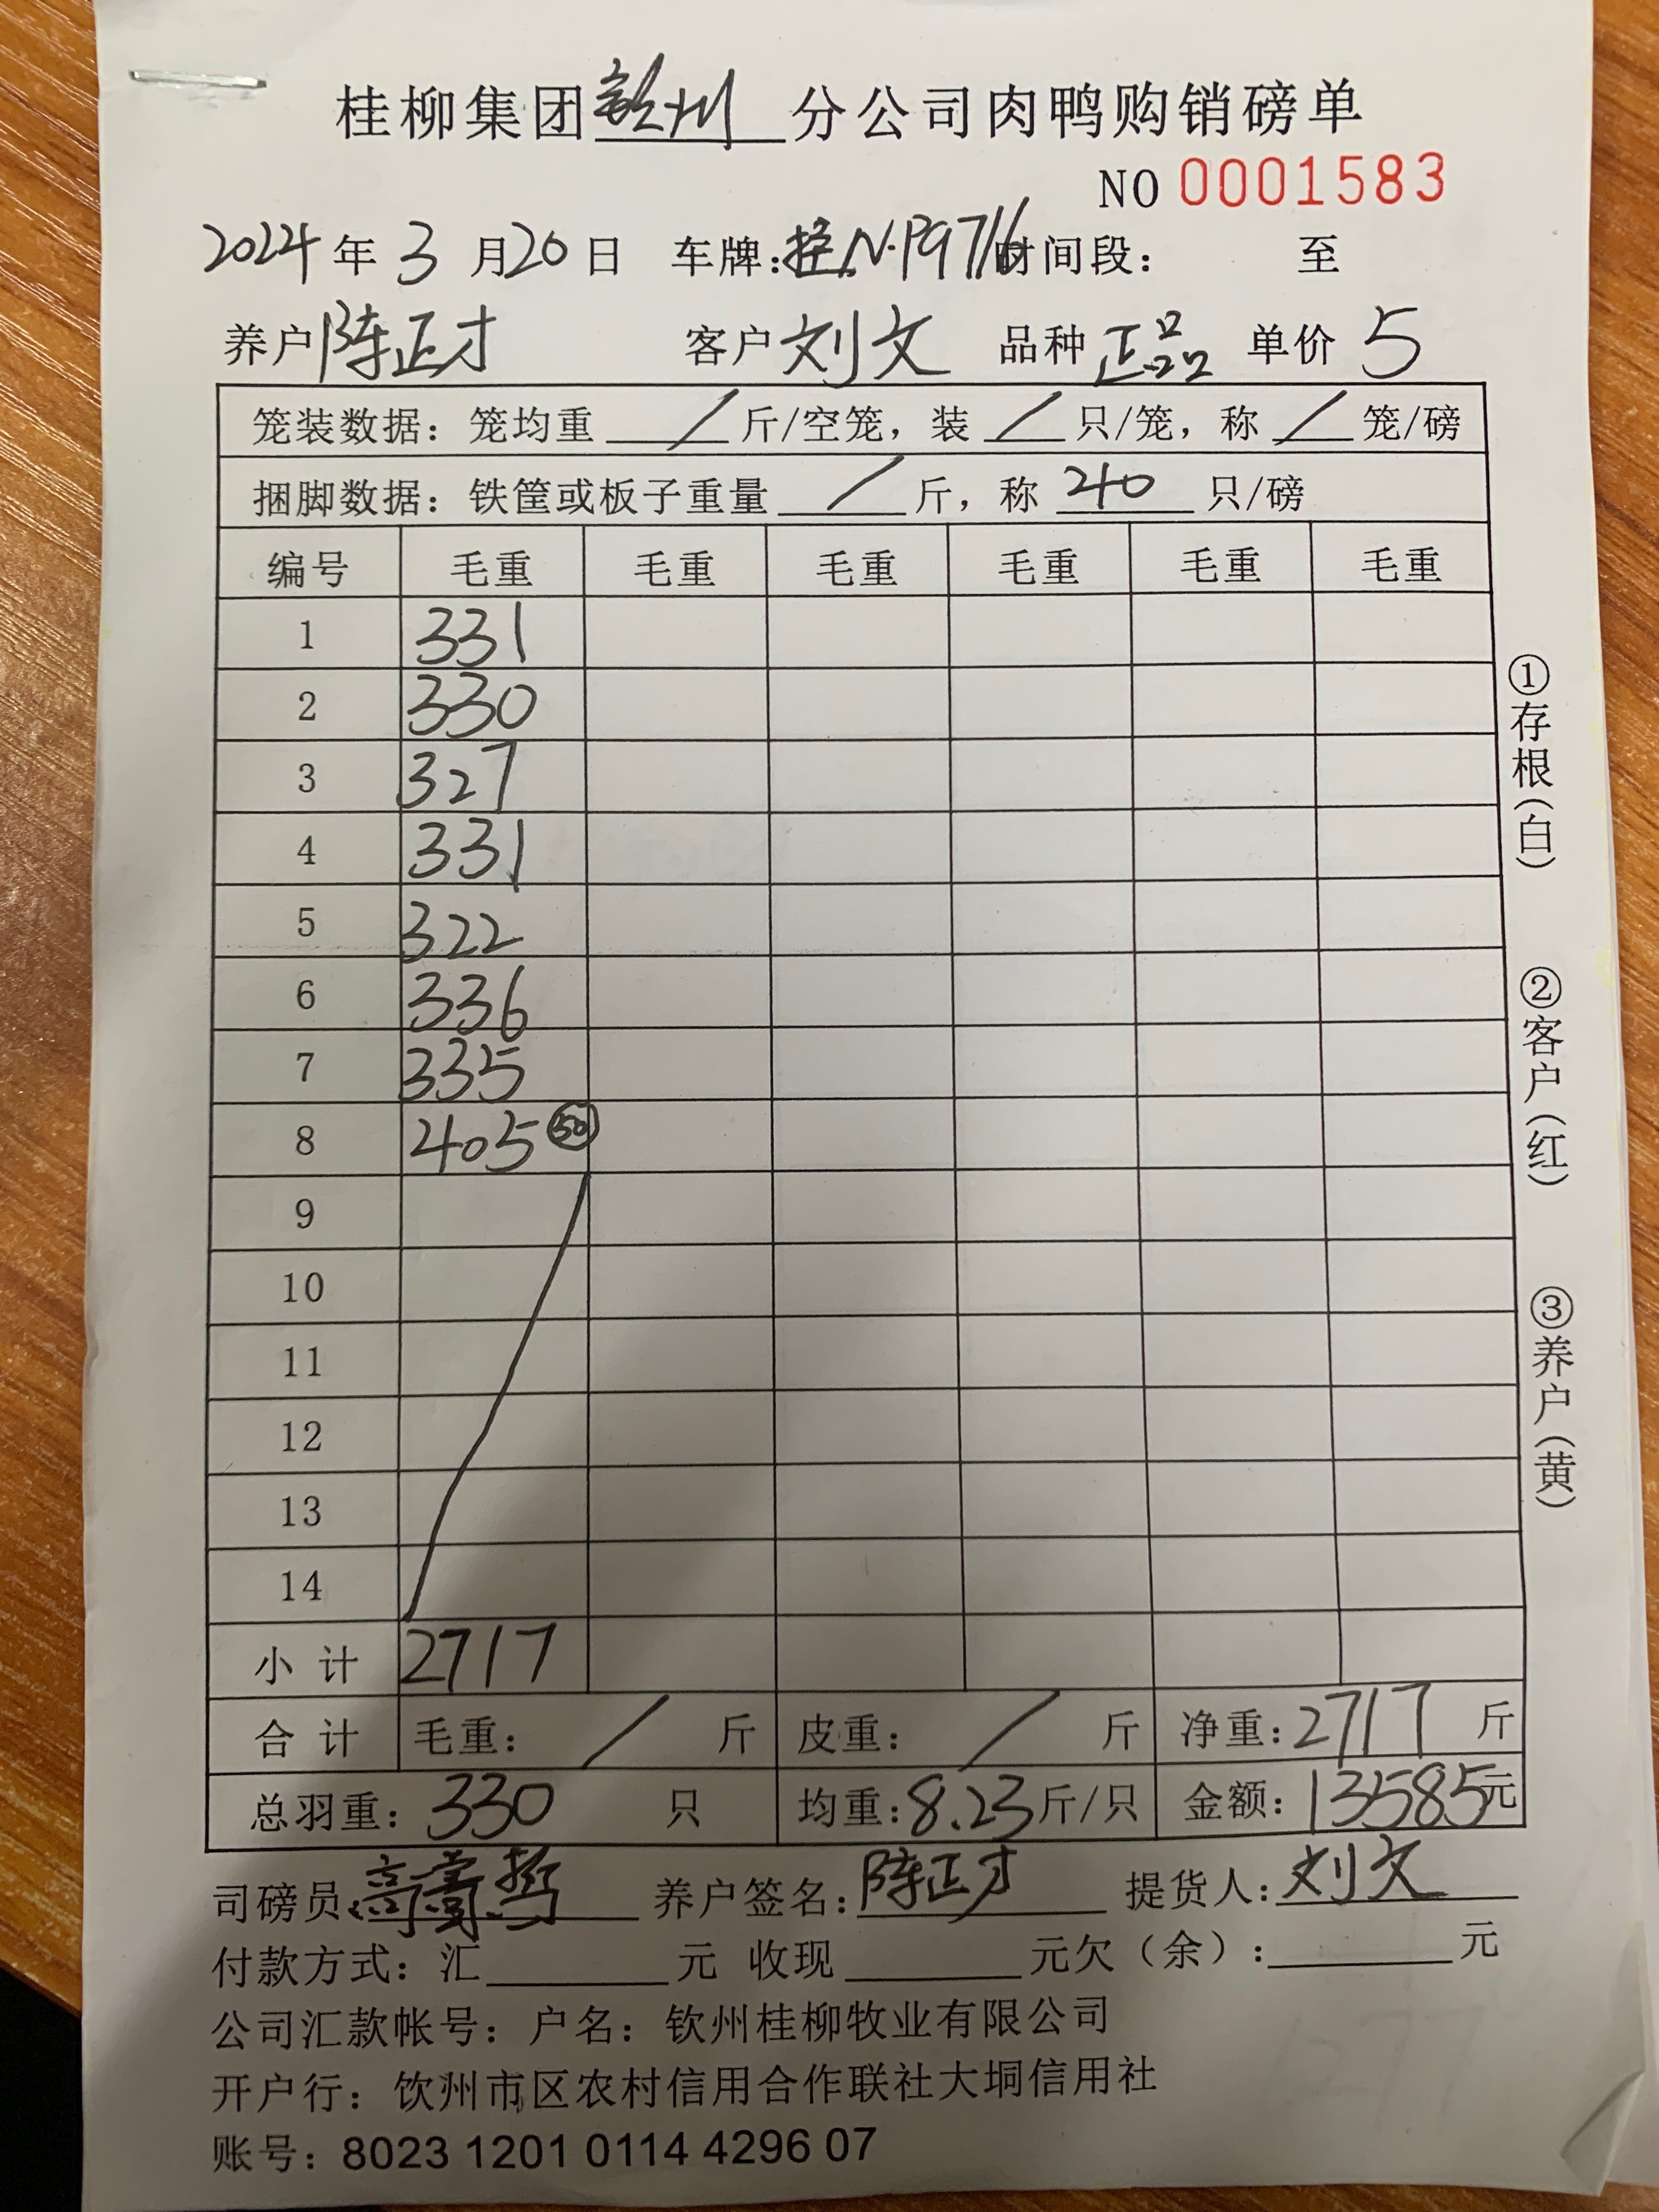 桂柳集团钦州分公司肉鸭购销磅单
NO 0001583
2024年3月20日 车牌:桂N·P9716时间段: 至
养户陈正才 客户刘文 品种正品 单价5
笼装数据:笼均重/斤/空笼,装/只/笼,称/笼/磅
捆脚数据:铁筐或板子重量/斤,称40只/磅
编号 毛重 毛重 毛重 毛重 毛重 毛重
1 331
2 330
3 327
4 331
5 322
6 336
7 335
8 405 50
9
10
11
12
13
14
小计 2717
合计 毛重:/斤 皮重:/斤 净重:2717斤
总羽重:330只 均重:8.23斤/只 金额:13585元
司磅员: 养户签名:陈正才 提货人:刘文
付款方式:汇______元 收现______元欠(余):______元
公司汇款帐号:户名:钦州桂柳牧业有限公司
开户行:钦州市区农村信用合作联社大垌信用社
账号:8023 1201 0114 4296 07
①存根(白)
②客户(红)
③养户(黄)